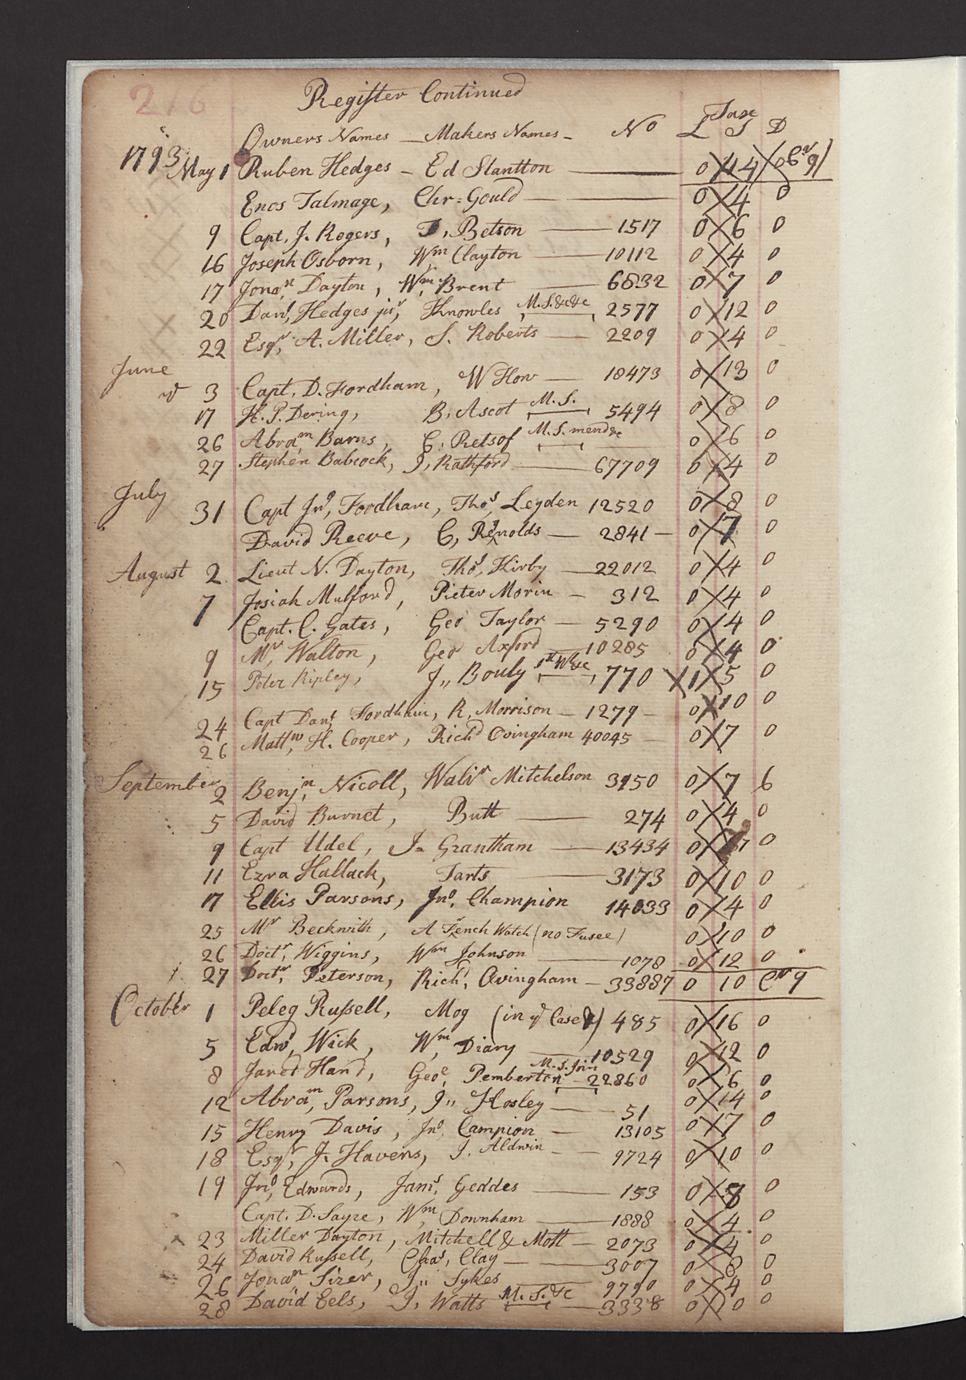 216
Register Continued
Owners Names — Makers Names — No £ S D
1793 May 1 Ruben Hedges — Ed Stantton 0 14
Enos Talmage, Chr: Gould 0 4 0
9 Capt. J. Rogers, D, Betson 1517 0 6 0
16 Joseph Osborn, Wm Clayton 10112 0 4 0
17 Jonan Dayton, Wm Brent 6832 0 7 0
20 Danl, Hedges jur, Knowles M.S. &c &c 2577 0 12 0
22 Esqr, A. Miller, S. Roberts 2209 0 4 0
June
3 Capt. D. Fordham, W How 18473 0 13 0
17 H. P. Dering, B. Ascot M.S. 5494 0 8 0
26 Abram Barns, C, Retsof M.S. mend &c 0 6 0
27 Stephen Babcock, J, Rathford 67709 0 4 0
July
31 Capt Jno, Fordham, Thos Leyden 12520 0 8 0
David Reeve, C, Renolds 2841 0 7 0
August 2 Lieut N. Dayton, Thos, Kirby 22012 0 4 0
7 Josiah Mulford, Pieter Morin 312 0 4 0
Capt. C. Gates, Geo Taylor 5290 0 4 0
9 Mr Walton, Geo Axford 10285 0 4 0
15 Peter Ripley, J,, Bouly 770 1 5 0
24 Capt Danl Fordham, R, Morrison 1279 0 10 0
26 Mattw, H. Cooper, Richd Ovingham 40045 0 7 0
September 2 Benjn, Nicoll, Mitchelson 3950 0 7 6
5 David Burnet, Butt 274 0 4 0
9 Capt Udel, J,, Grantham 13434 0 7 0
11 Ezra Hallack, Tarts 3173 0 10 0
17 Ellis Parsons, Jno, Champion 14033 0 4 0
25 Mr Beckwith, A French Watch (no Fusee) 0 10 0
26 Doctr, Wiggins, Wm Johnson 1078 0 12 0
27 Doctr, Peterson, Richd, Ovingham 33887 0 10 Cr 9
October 1 Peleg Russell, Mog (in ye Case) 485 0 16 0
5 Edwd, Wick, Wm, Diary 10529 0 12 0
8 Jared Hand, Geoe, Pemberton 22860 0 6 0
12 Abram, Parsons, J,, Hosley 51 0 14 0
15 Henry Davis, Jno, Campion 13105 0 7 0
18 Esqr, J. Havens, J. Aldwin 9724 0 10 0
19 Jno, Edwards, Jams, Geddes 153 0 8 0
Capt. D. Sayre, Wm Downham 1888 0 4 0
23 Miller Dayton, Mitchell & Mott 2073 0 4 0
24 David Russell, Chas, Clay 3007 0 8 0
26 Jonan Sizer, J,, Sykes 9790 0 4 0
28 David Eels, J, Watts M.S. &c 3338 0 10 0